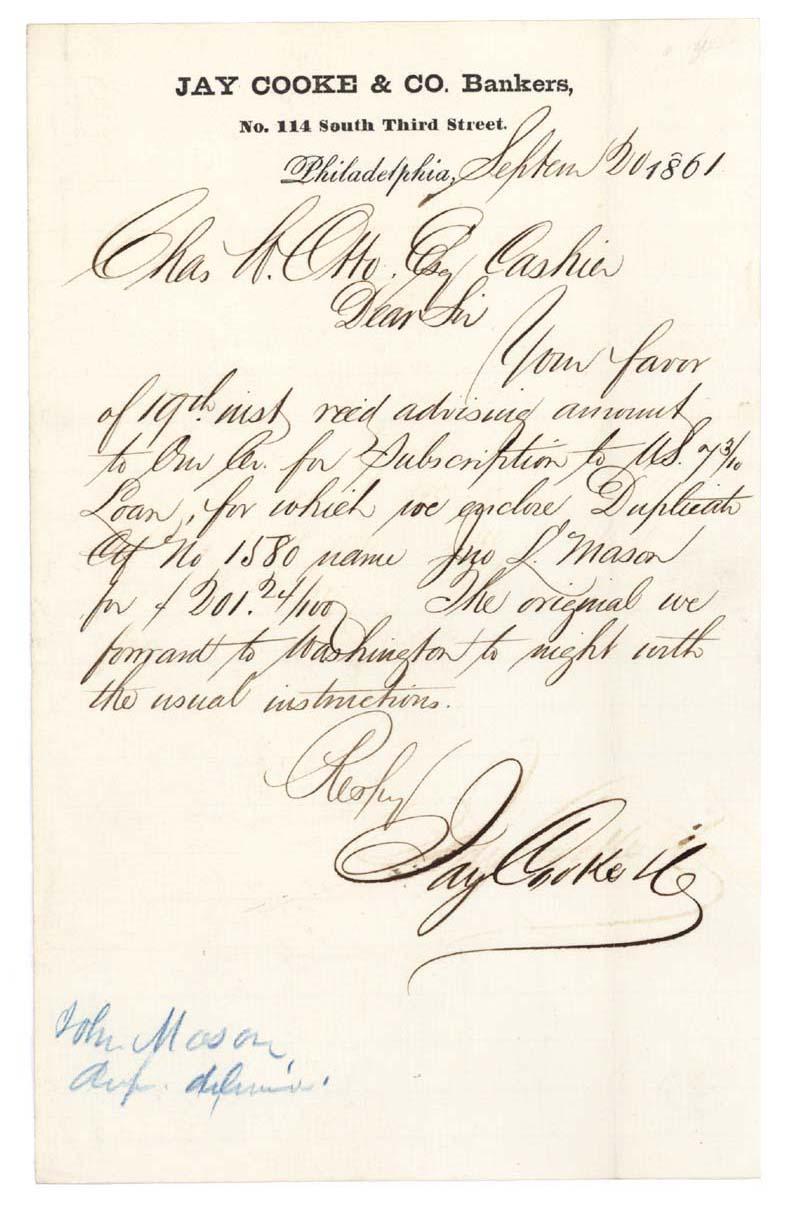 JAY COOKE & CO. Bankers,
No. 114 South Third Street.
Philadelphia, Septem 20 1861
Chas W. Otto. Esq Cashier
Dear Sir
Your favor
of 19th inst recd advising amount
to Our Cr. for Subscription to US. 7 3/10
Loan, for which we enclose Duplicate
Ctf No 1580 name Jno L. Mason
for $ 201.24/100 The original we
forward to Washington to night with
the usual instructions.
Respy
Jay Cooke & Co
John Mason